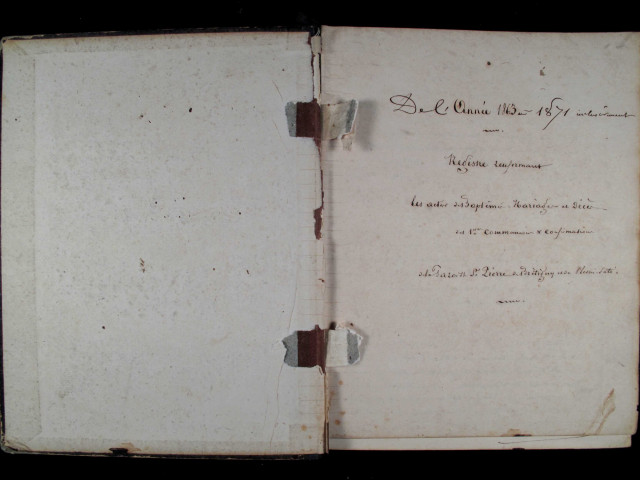 De l'Année 1863 à 1871 inclusivement
Registre renfermant
les actes de Baptême, Mariage et Décè
et 1ère Communion & Confirmation
de la Paroisse St Pierre de Brétigny